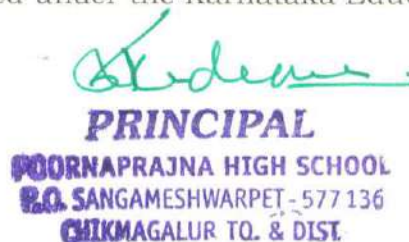 under the Karnataka
PRINCIPAL
POORNAPRAJNA HIGH SCHOOL
P.O. SANGAMESHWARPET-577 136
CHIKMAGALUR TQ. & DIST.